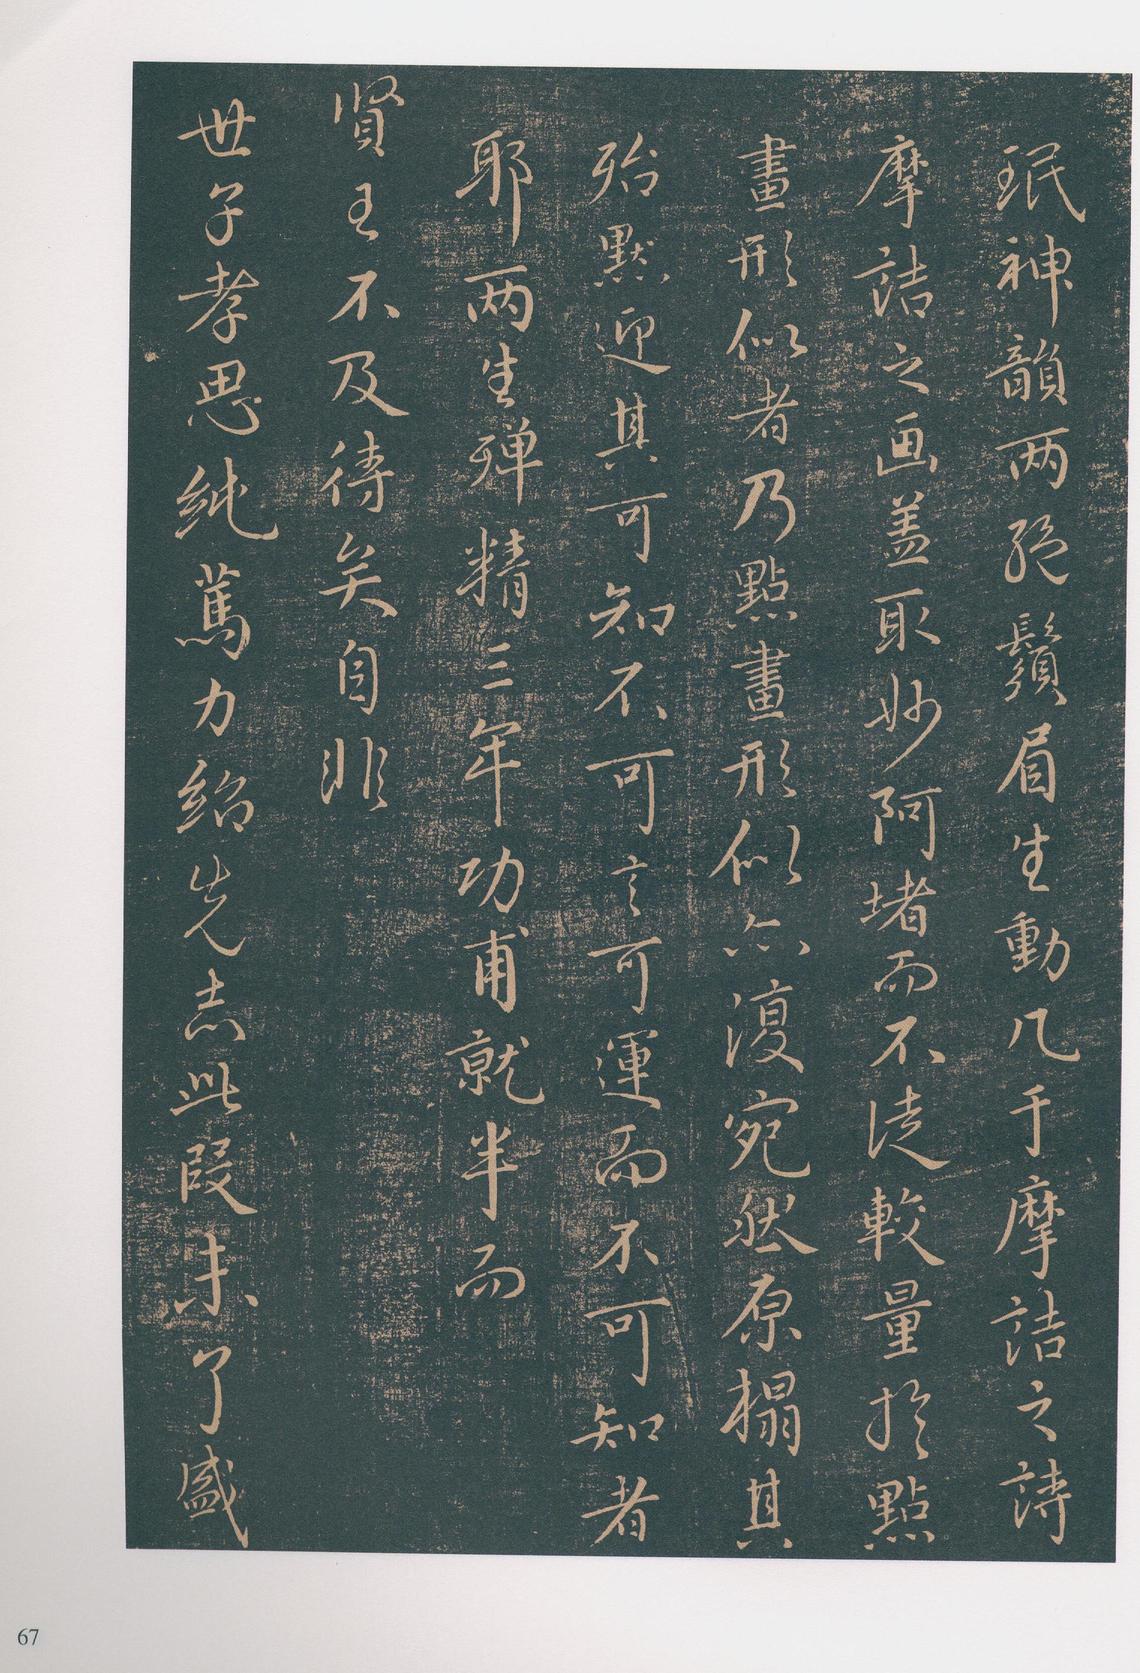 珉神韻两絕鬚眉生動几于摩詰之詩
摩詰之画盖取妙阿堵而不徒較量於點
畫形似者乃點畫形似亦復宛然原搨其
殆默迎其可知不可言可運而不可知者
耶两生殫精三年功甫就半而
賢王不及待矣自非
世子孝思純篤力紹先志此段未了盛
67